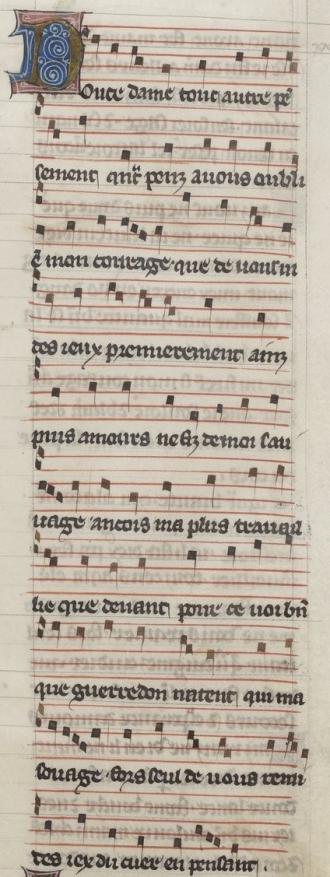 Douce dame tout autre pē
sement quāt penz a vous oubli
ē mon courage que de uous ui
des ieux premierement ainz
puis amours ne fu de moi sau
uage ancois ma plus trauail
lie que deuant pour ce uoi bñ
que guerredon natent qui ma
souage fors seul de uous remi
des iex du cuer en pensant.